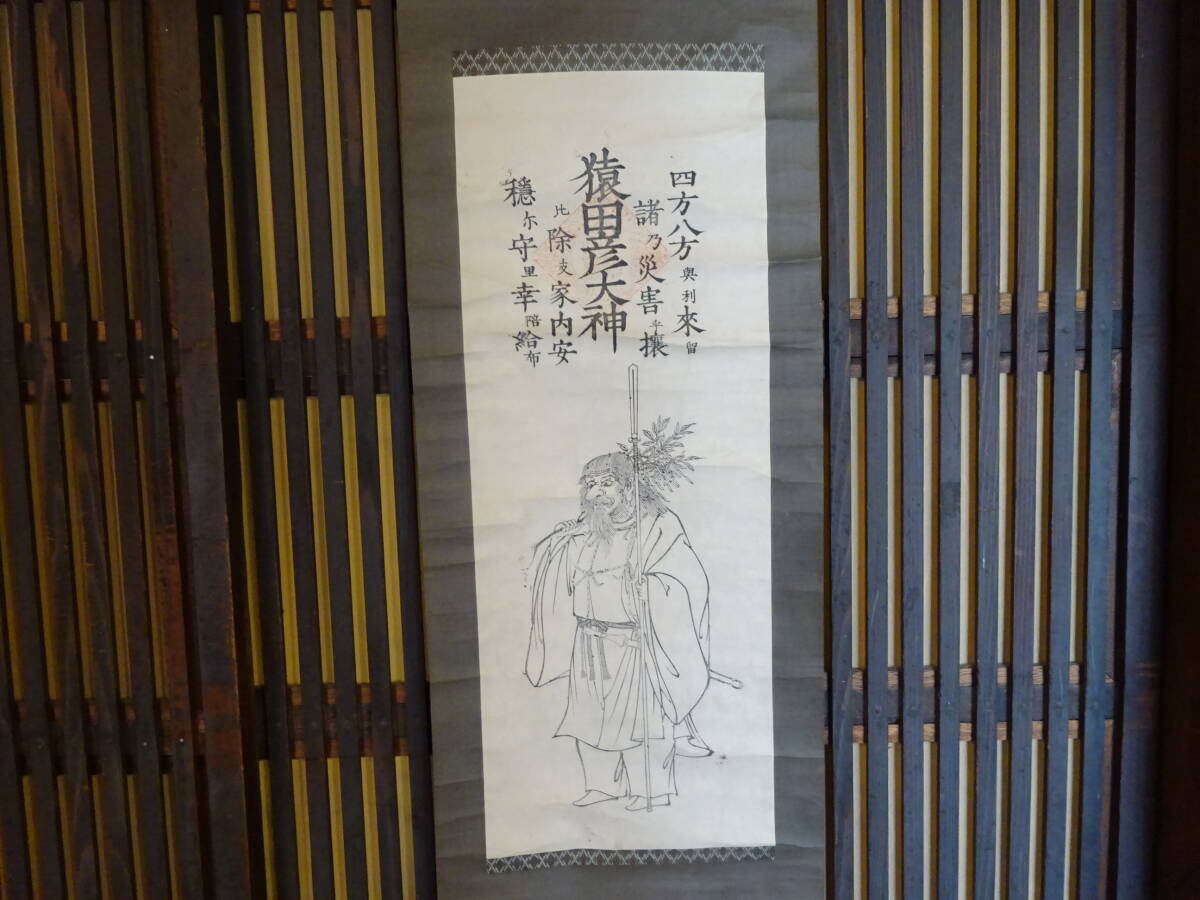 四方八方與利來留
諸乃災害乎攘
猿田彦大神
比除支家内安
穏尓守里幸陪給布